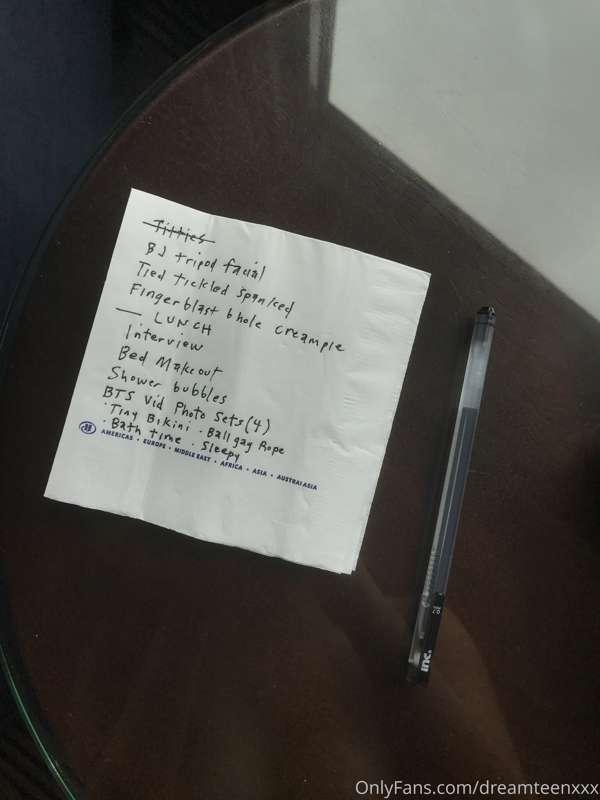 Titties
BJ tripod facial
Tied tickled spanked
Fingerblast bhole creampie
— LUNCH
Interview
Bed Makeout
Shower bubbles
BTS Vid Photo Sets (4)
· Tiny Bikini · Ball gag Rope
· Bath time · Sleepy
AMERICAS · EUROPE · MIDDLE EAST · AFRICA · ASIA · AUSTRALASIA
inc.
OnlyFans.com/dreamteenxxx